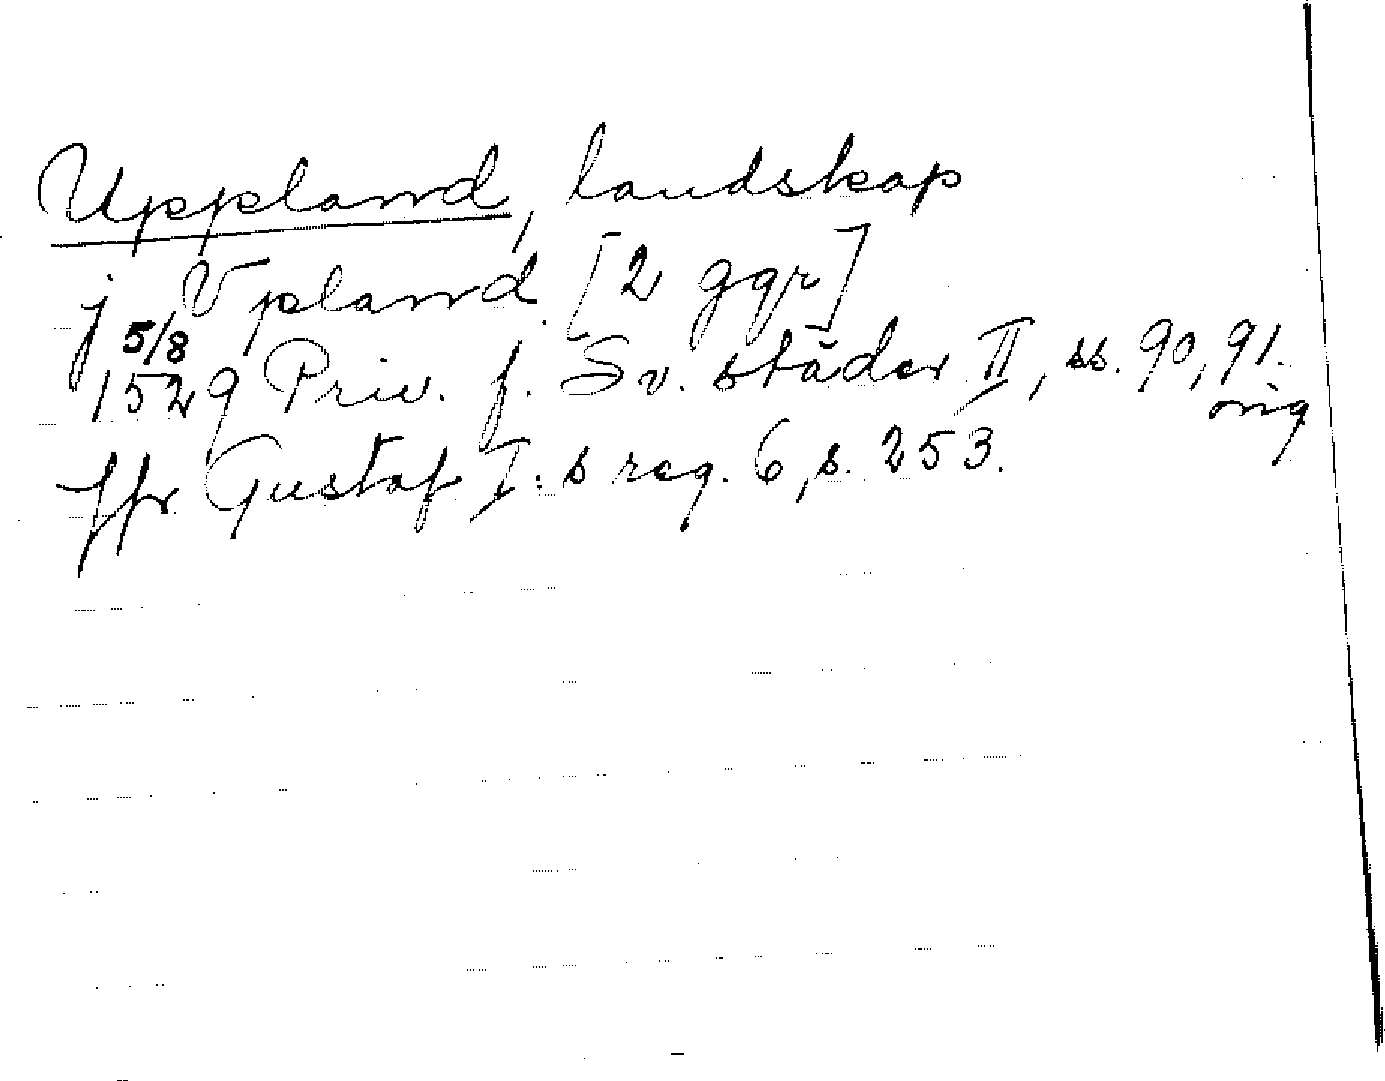 Uppland, landskap
j Vpland [2 ggr]
5/8
1529 Priv. f. Sv. städer II, ss. 90, 91.
orig
Jfr Gustaf I:s reg. 6, s. 253.